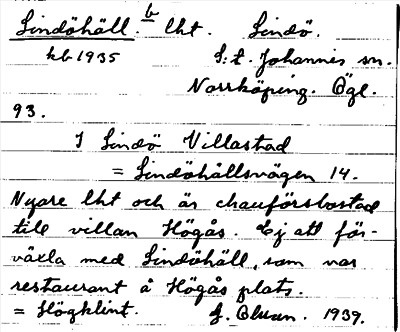 Lindöhäll. b lht. Lindö.
kb 1935 S:t. Johannis sn.
Norrköping. Ögl.
93.
I Lindö Villastad
= Lindöhällsvägen 14.
Nyare lht och är chaufförsbostad
till villan Högås. Ej att för-
växla med Lindöhäll, som var
restaurant å Högås plats.
= Högklint. 1939.